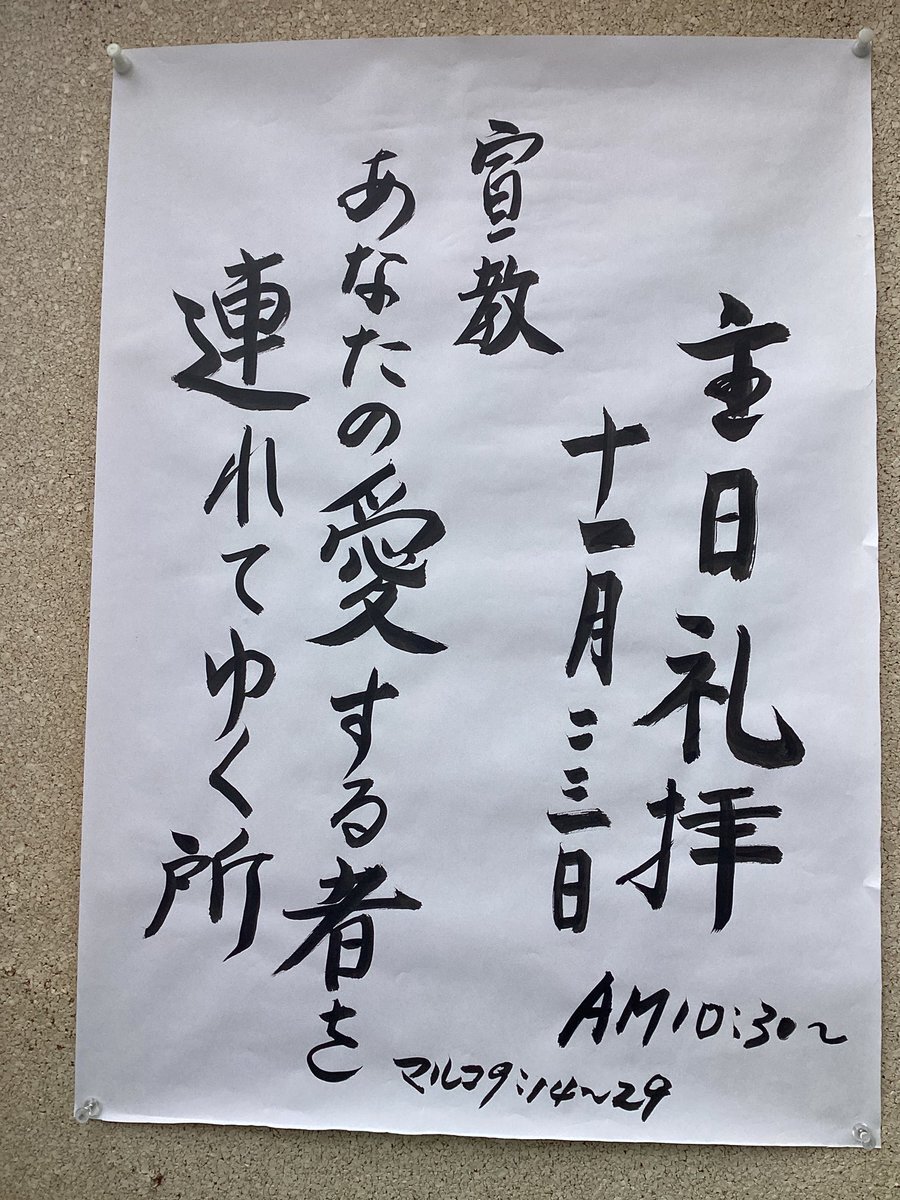 主日礼拝
十一月二三日
AM10:30~
宣教
あなたの愛する者を
連れてゆく所
マルコ9:14~29